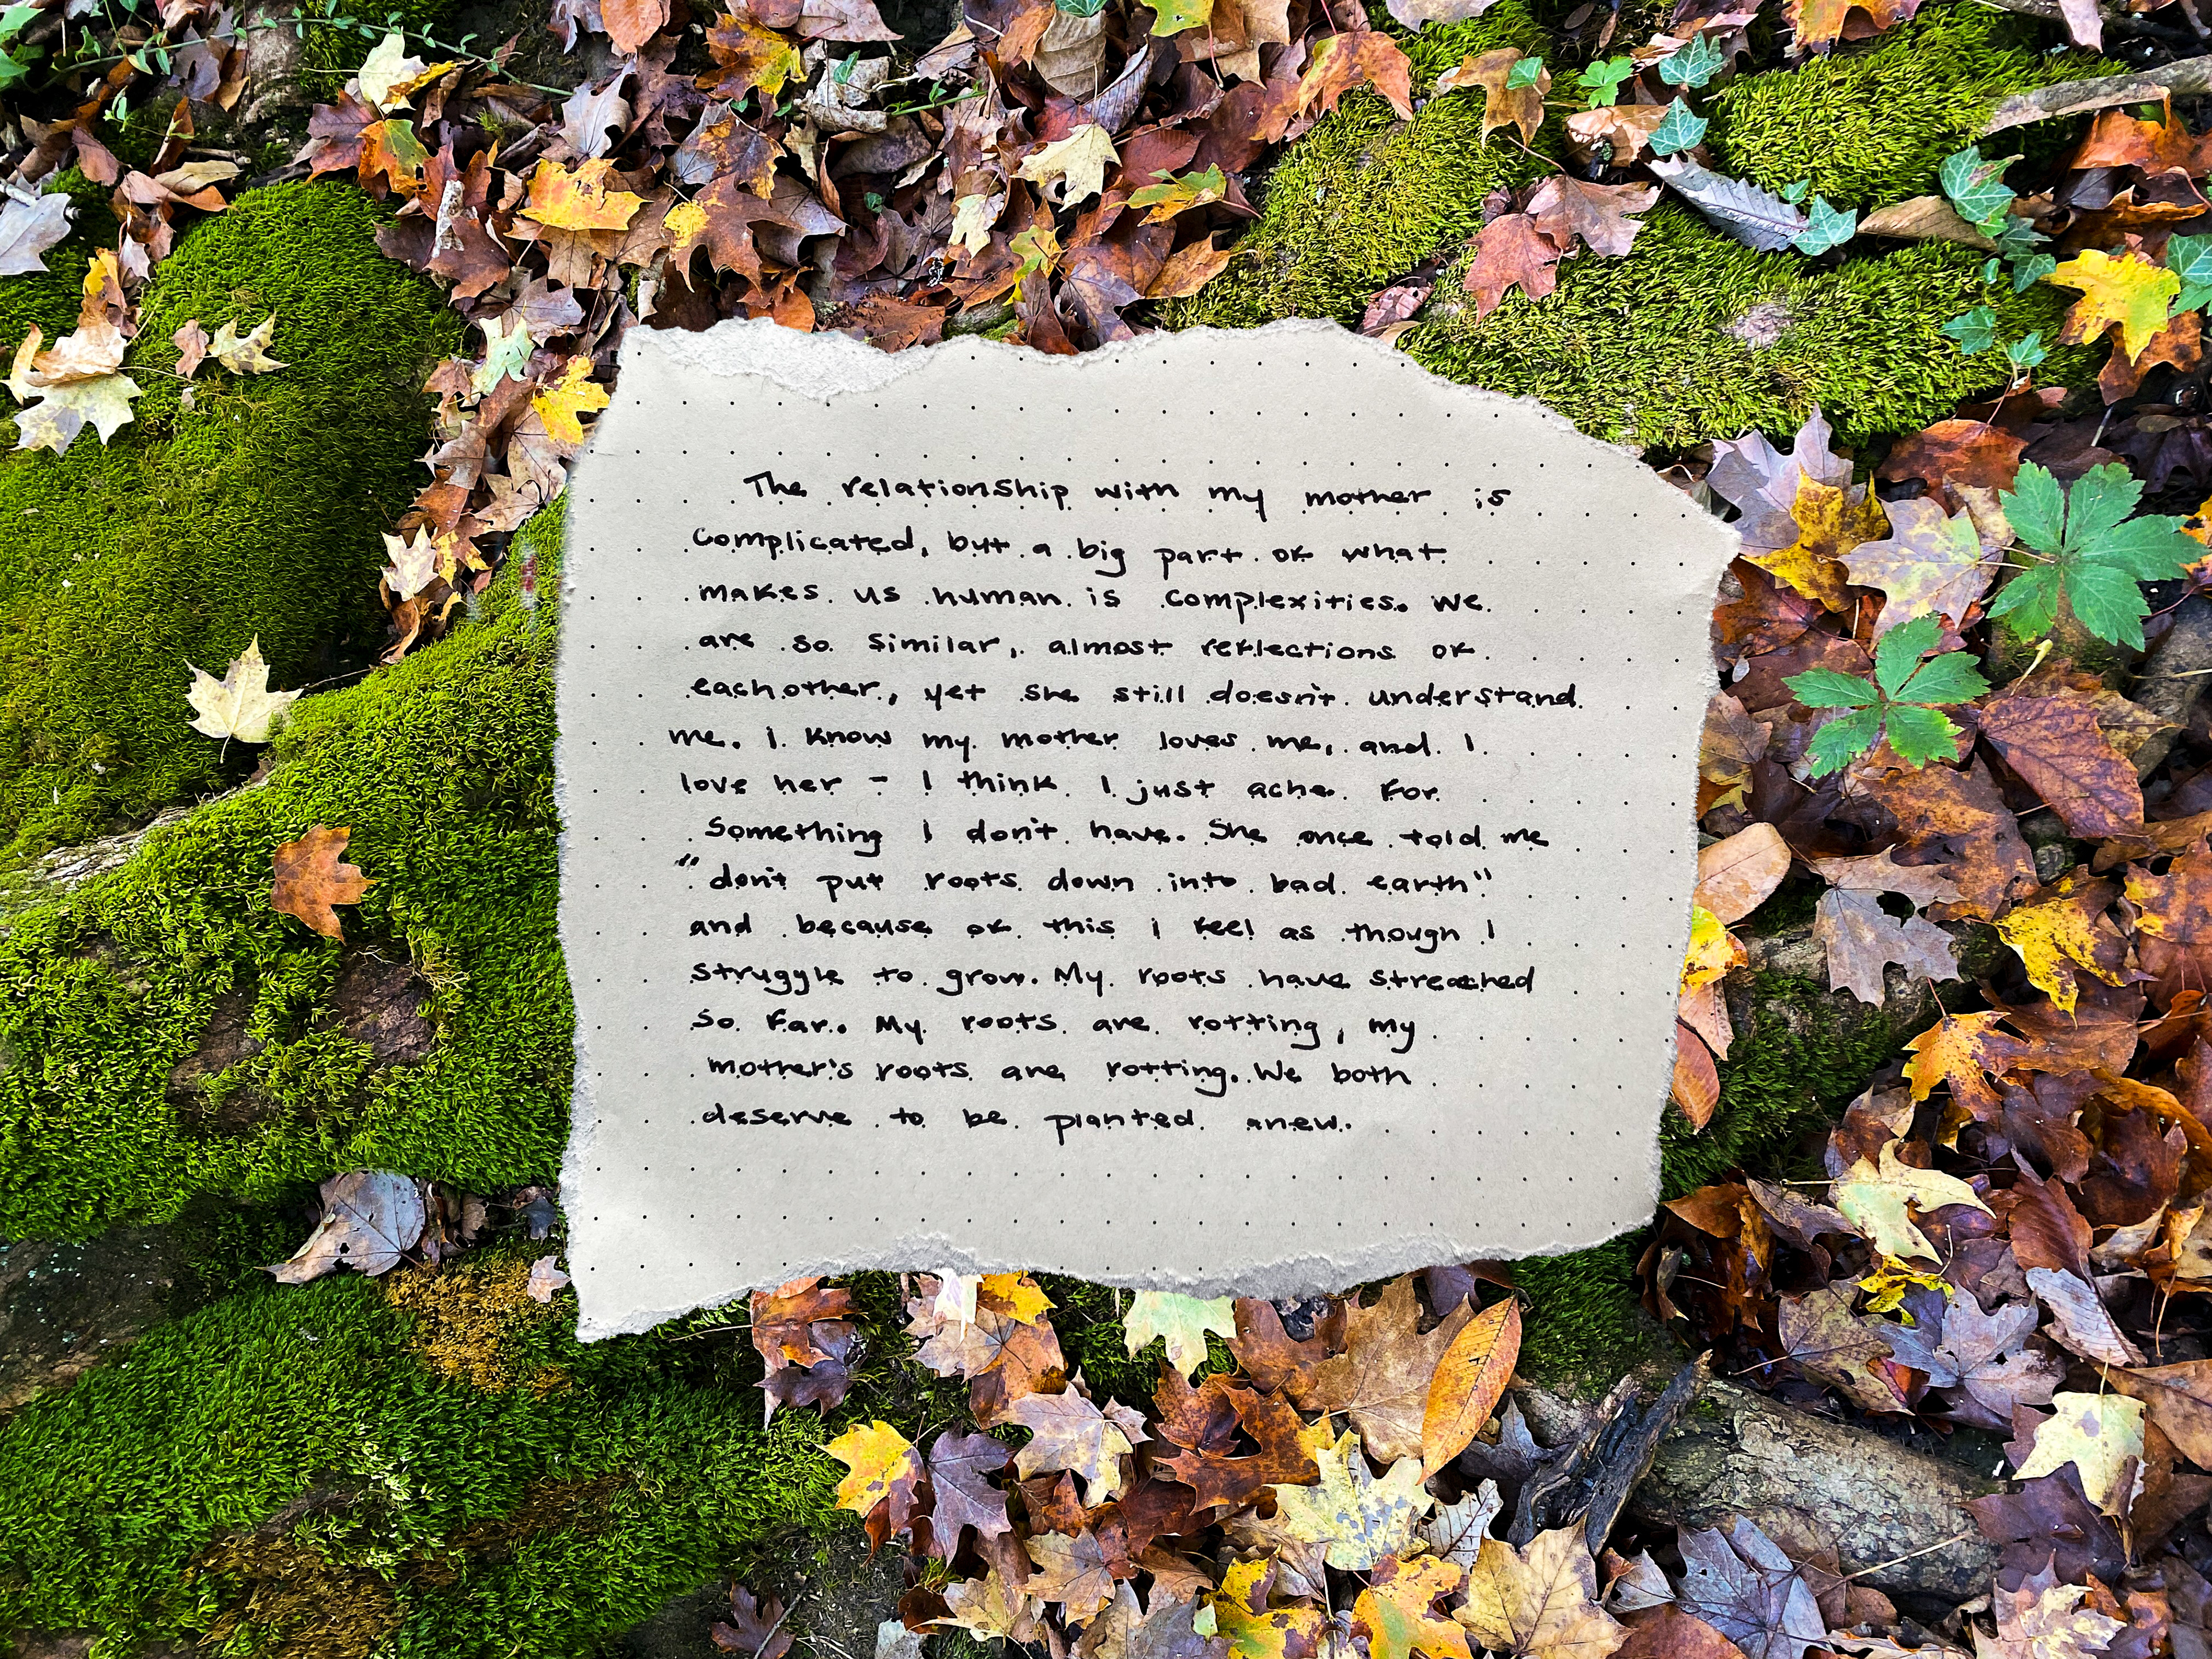 The relationship with my mother is
complicated, but a big part of what
makes us human is complexities. We
are so similar, almost reflections of
eachother, yet she still doesn't understand
me. I know my mother loves me, and I
love her - I think I just ache for
something I don't have. She once told me
"don't put roots down into bad earth"
and because of this I feel as though I
struggle to grow. My roots have streached
so far. My roots are rotting, my
mother's roots are rotting. We both
deserve to be planted anew.